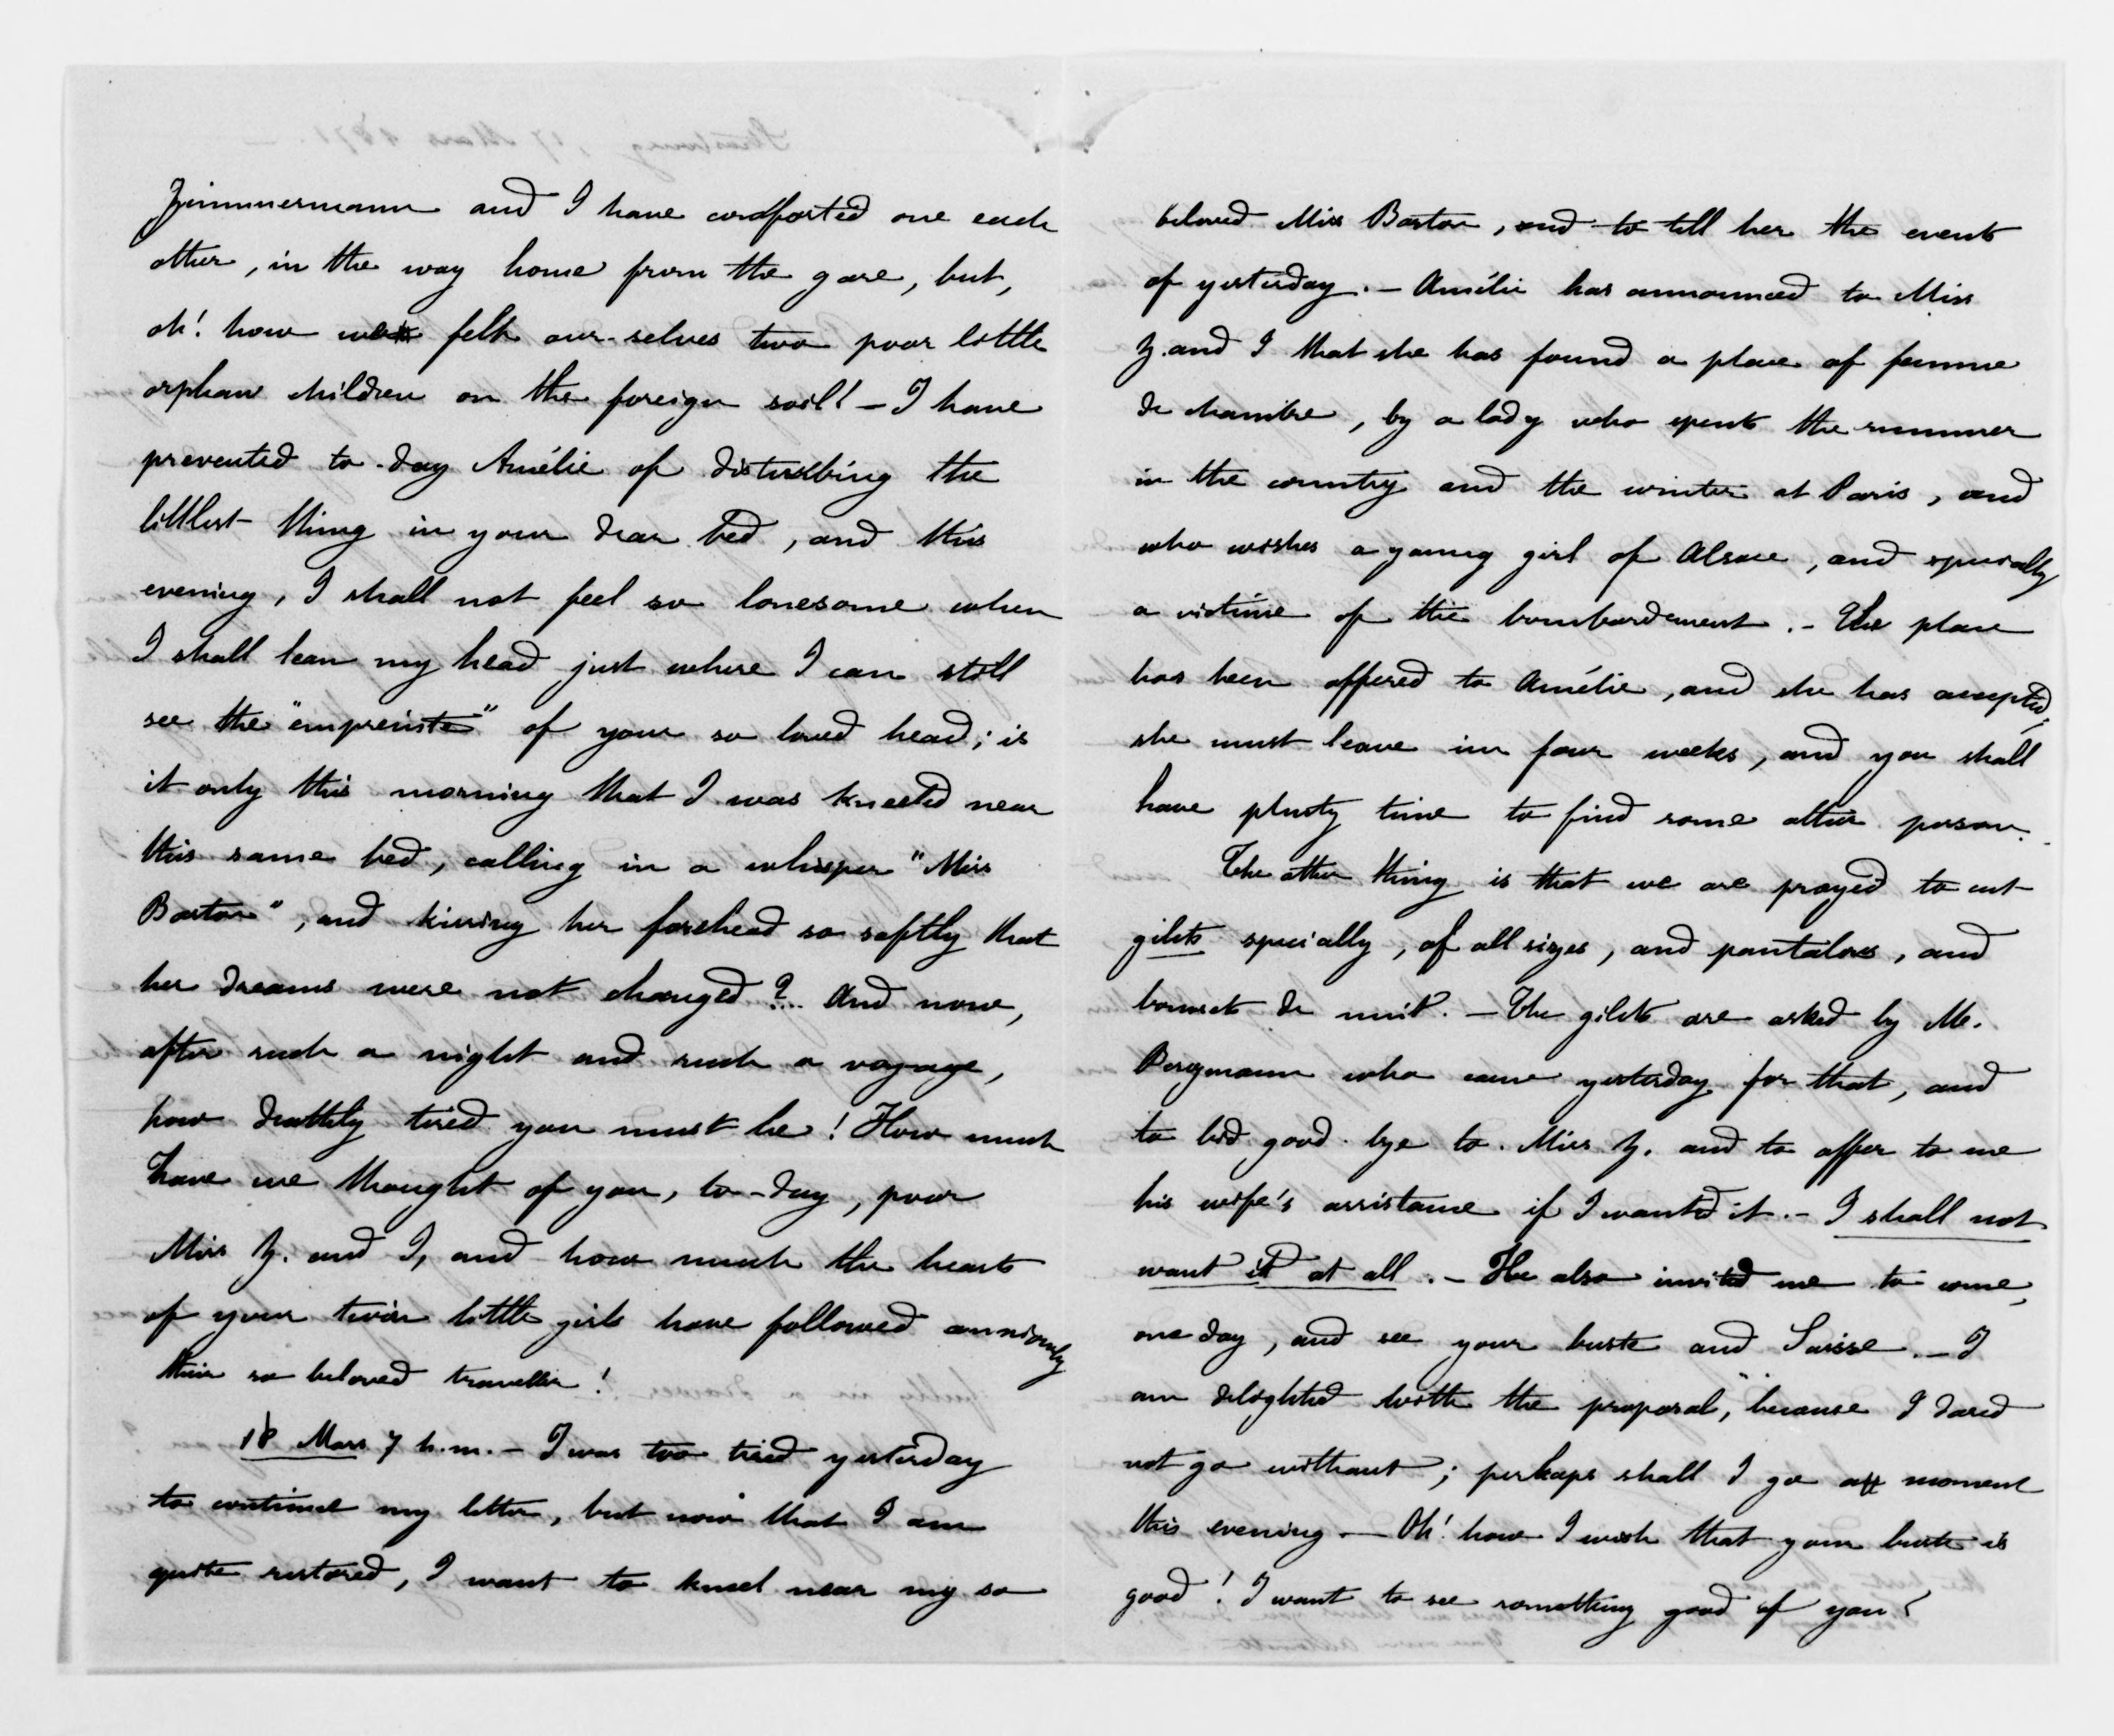 Zimmermann and I have comforted one each
other, in the way home from the gare, but,
oh! how we felt our-selves two poor little
orphan children on the foreign soil! – I have
prevented to-day Amélie of disturbing the
littlest thing in your dear bed, and this
evening, I shall not feel so lonesome when
I shall lean my head just where I can still
see the "empreinte" of your so loved head; is
it only this morning that I was kneeled near
this same bed, calling in a whisper "Miss
Barton", and kissing her forehead so softly that
her dreams were not changed?.. And now,
after such a night and such a voyage,
how deathly tired you must be! How much
have we thought of you, to-day, poor
Miss Z. and I, and how much the hearts
of your twin little girls have followed anxiously
their so beloved traveller!
18 Mars 7 h.m. – I was too tired yesterday
to continue my letter, but now that I am
quite restored, I want to kneel near my so
beloved Miss Barton, and to tell her the events
of yesterday. – Amélie has announced to Miss
Z. and I that she has found a place of femme
de chambre, by a lady who spents the summer
in the country and the winter at Paris, and
who wishes a young girl of Alsace, and specially
a victime of the bombardement. – The place
has been offered to Amélie, and she has accepted;
she must leave in four weeks, and you shall
have plenty time to find some other person.
The other thing is that we are prayed to cut
gilets specially, of all sizes, and pantalons, and
bonnets de nuit. – The gilets are asked by M.
Bergmann who came yesterday for that, and
to bid good-bye to Miss Z. and to offer to me
his wife's assistance if I wanted it. – I shall not
want it at all. – He also invited me to come,
one day, and see your buste and Suisse. – I
am delighted with the proposal, because I dared
not go without; perhaps shall I go a moment
this evening. – Oh! how I wish that your buste is
good! I want to see something good of you!